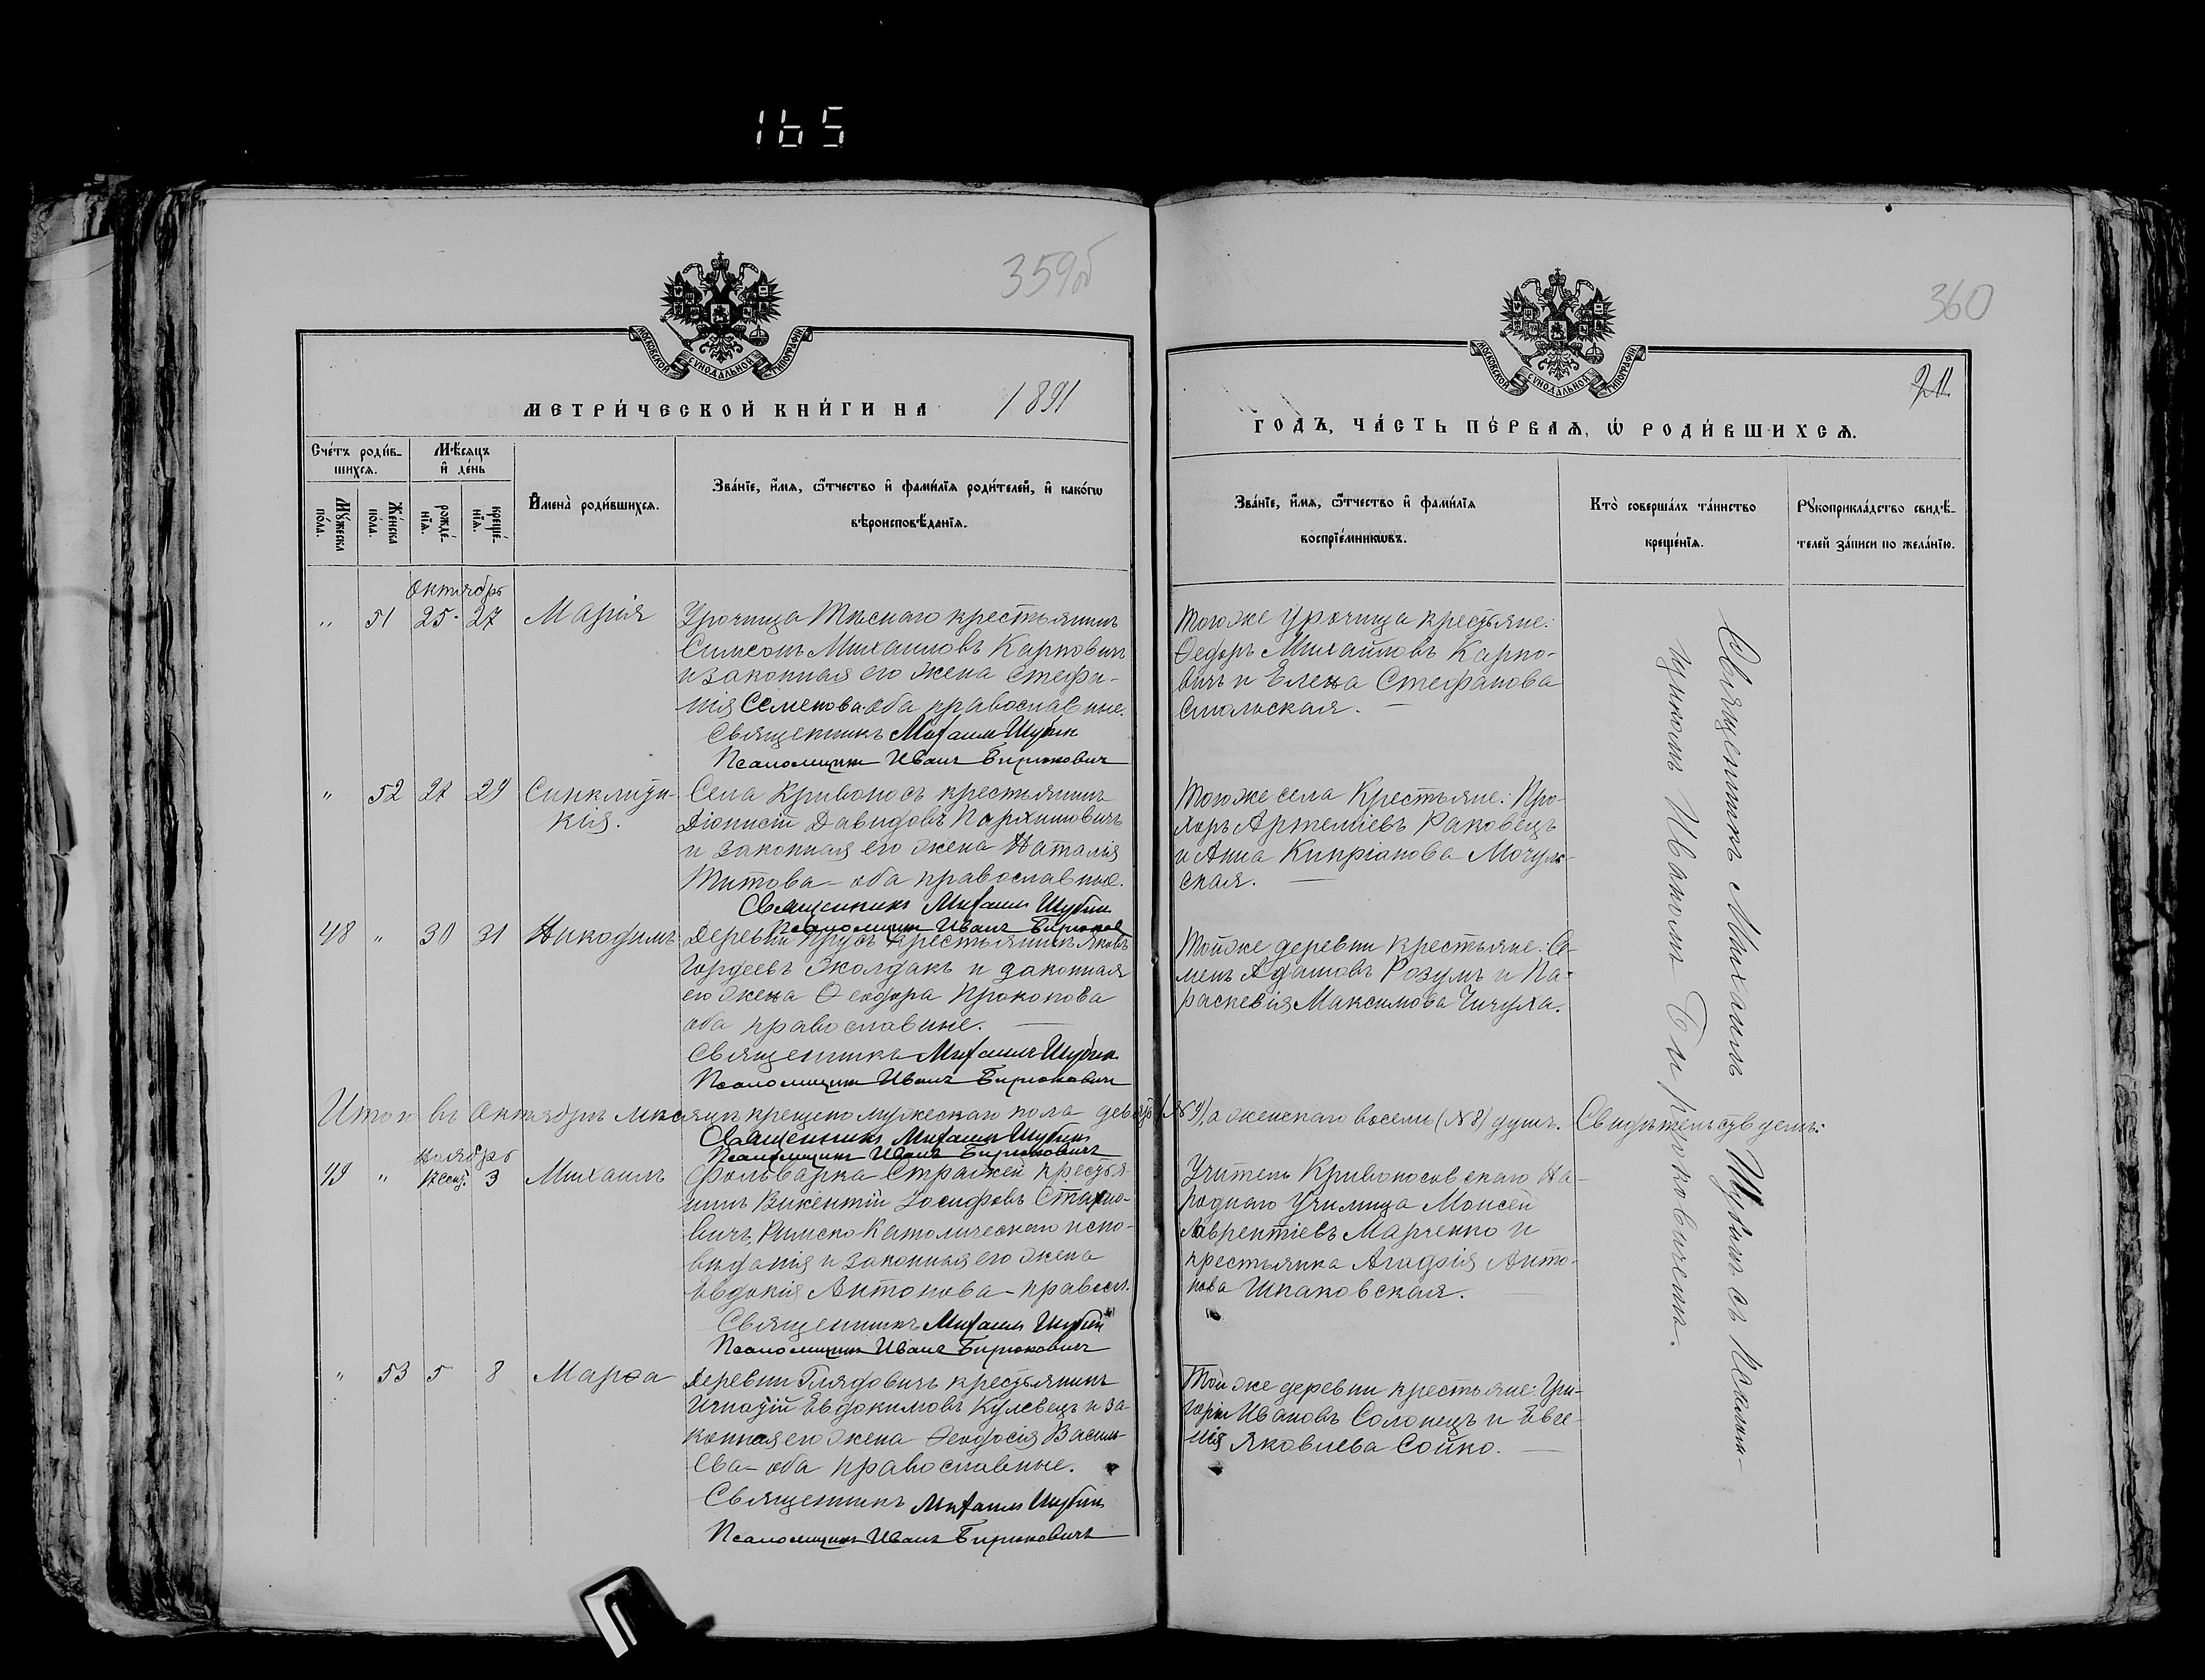 165
359об
МОСКОВСКОЙ СУНОДАЛЬНОЙ ТИПОГРАФІИ
МЕТРИ́ЧЕСКОЙ КНИ́ГИ НА 1891
Сче́тъ роди́в-
шихсѧ.
Мѣ́сѧцъ
и҆ де́нь
И҆мена̀ роди́вшихсѧ.
Зва́нїе, и҆́мѧ, ѻ҆́тчество и҆ фами́лїѧ роди́телей, и҆ како́гѡ
вѣроисповѣ́данїѧ.
Мꙋ́жеска
по́ла.
Же́нска
по́ла.
рожде́-
нїѧ.
креще́-
нїѧ.
Октябрь
" 51 25 27 Марія
Урочища Тѣснаго крестьянинъ
Симеонъ Михаиловъ Карповичъ
и законная его жена Стефа-
нія Семенова оба православные.
Священникъ Михаилъ Шубин
Псаломщикъ Иванъ Бирюковичъ
" 52 27 29 Синклити-
кія.
Села Кривоносъ крестьянинъ
Діонисій Давидовъ Пархимовичъ
и законная его жена Наталія
Титова – оба православные.
Священникъ Михаилъ Шубин
Псаломщикъ Иванъ Бирюков
48 " 30 31 Никодимъ
Деревни Прусъ крестьянинъ Яковъ
Гордеевъ Жолдакъ и законная
его жена Ѳеодора Прокопова
оба православные.
Священникъ Михаилъ Шубин
Псаломщикъ Иванъ Бирюковичъ
Итого въ Октябрѣ мѣсяцѣ крещено мужескаго пола девять (№ 9), а женскаго восемь (№ 8) душъ. Свидѣтельствуемъ:
Священникъ Михаилъ Шубин
Псаломщикъ Иванъ Бирюковичъ
Ноябрь
49 " 17 сент. 3 Михаилъ
Фольварка Стражей крестья-
нинъ Викентій Іосифовъ
Римско-Католическаго испо-
вѣданія и законная его жена
Евдокія Антонова – правосл.
Священникъ Михаилъ Шубин
Псаломщикъ Иванъ Бирюковичъ
" 53 5 8 Марѳа
Деревни Глядовичъ крестьянинъ
Игнатій Евдокимовъ Кулевецъ и за-
конная его жена Ѳеодосія Василь-
ева – оба православные.
Священникъ Михаилъ Шубин
Псаломщикъ Иванъ Бирюковичъ
360
МОСКОВСКОЙ СУНОДАЛЬНОЙ ТИПОГРАФІИ
21.
ГОДЪ, ЧА́СТЬ ПЕ́РВАѦ, Ѡ҆ РОДИ́ВШИХСѦ.
Зва́нїе, и҆́мѧ, ѻ҆́тчество и҆ фами́лїѧ
воспрїе́мникѡвъ.
Кто̀ соверша́лъ та́инство
креще́нїѧ.
Рꙋкоприкла́дство свидѣ́-
телей за́писи по жела́нїю.
Тогоже урочища крестьяне:
Ѳедоръ Михайловъ Карпо-
вичъ и Елена Стефанова
Смольская.
Тогоже села Крестьяне: Про-
хоръ Артеміевъ Раковецъ
и Анна Кипріанова Мочуль-
ская.
Тойже деревни крестьяне: Се-
менъ Адамовъ Розумъ и Па-
раскевія Максимова Чичуха.
Учитель Кривоносовскаго На-
роднаго Училища Моисей
Лаврентіевъ Марченко и
крестьянка Агафія Анто-
нова Шпаковская.
Той же деревни крестьяне: Гри-
горій Ивановъ Солонецъ и Евге-
нія Яковлева Сойко.
Священникъ Михаилъ Шубинъ съ Псалом-
щикомъ Иваномъ Бирюковичемъ.